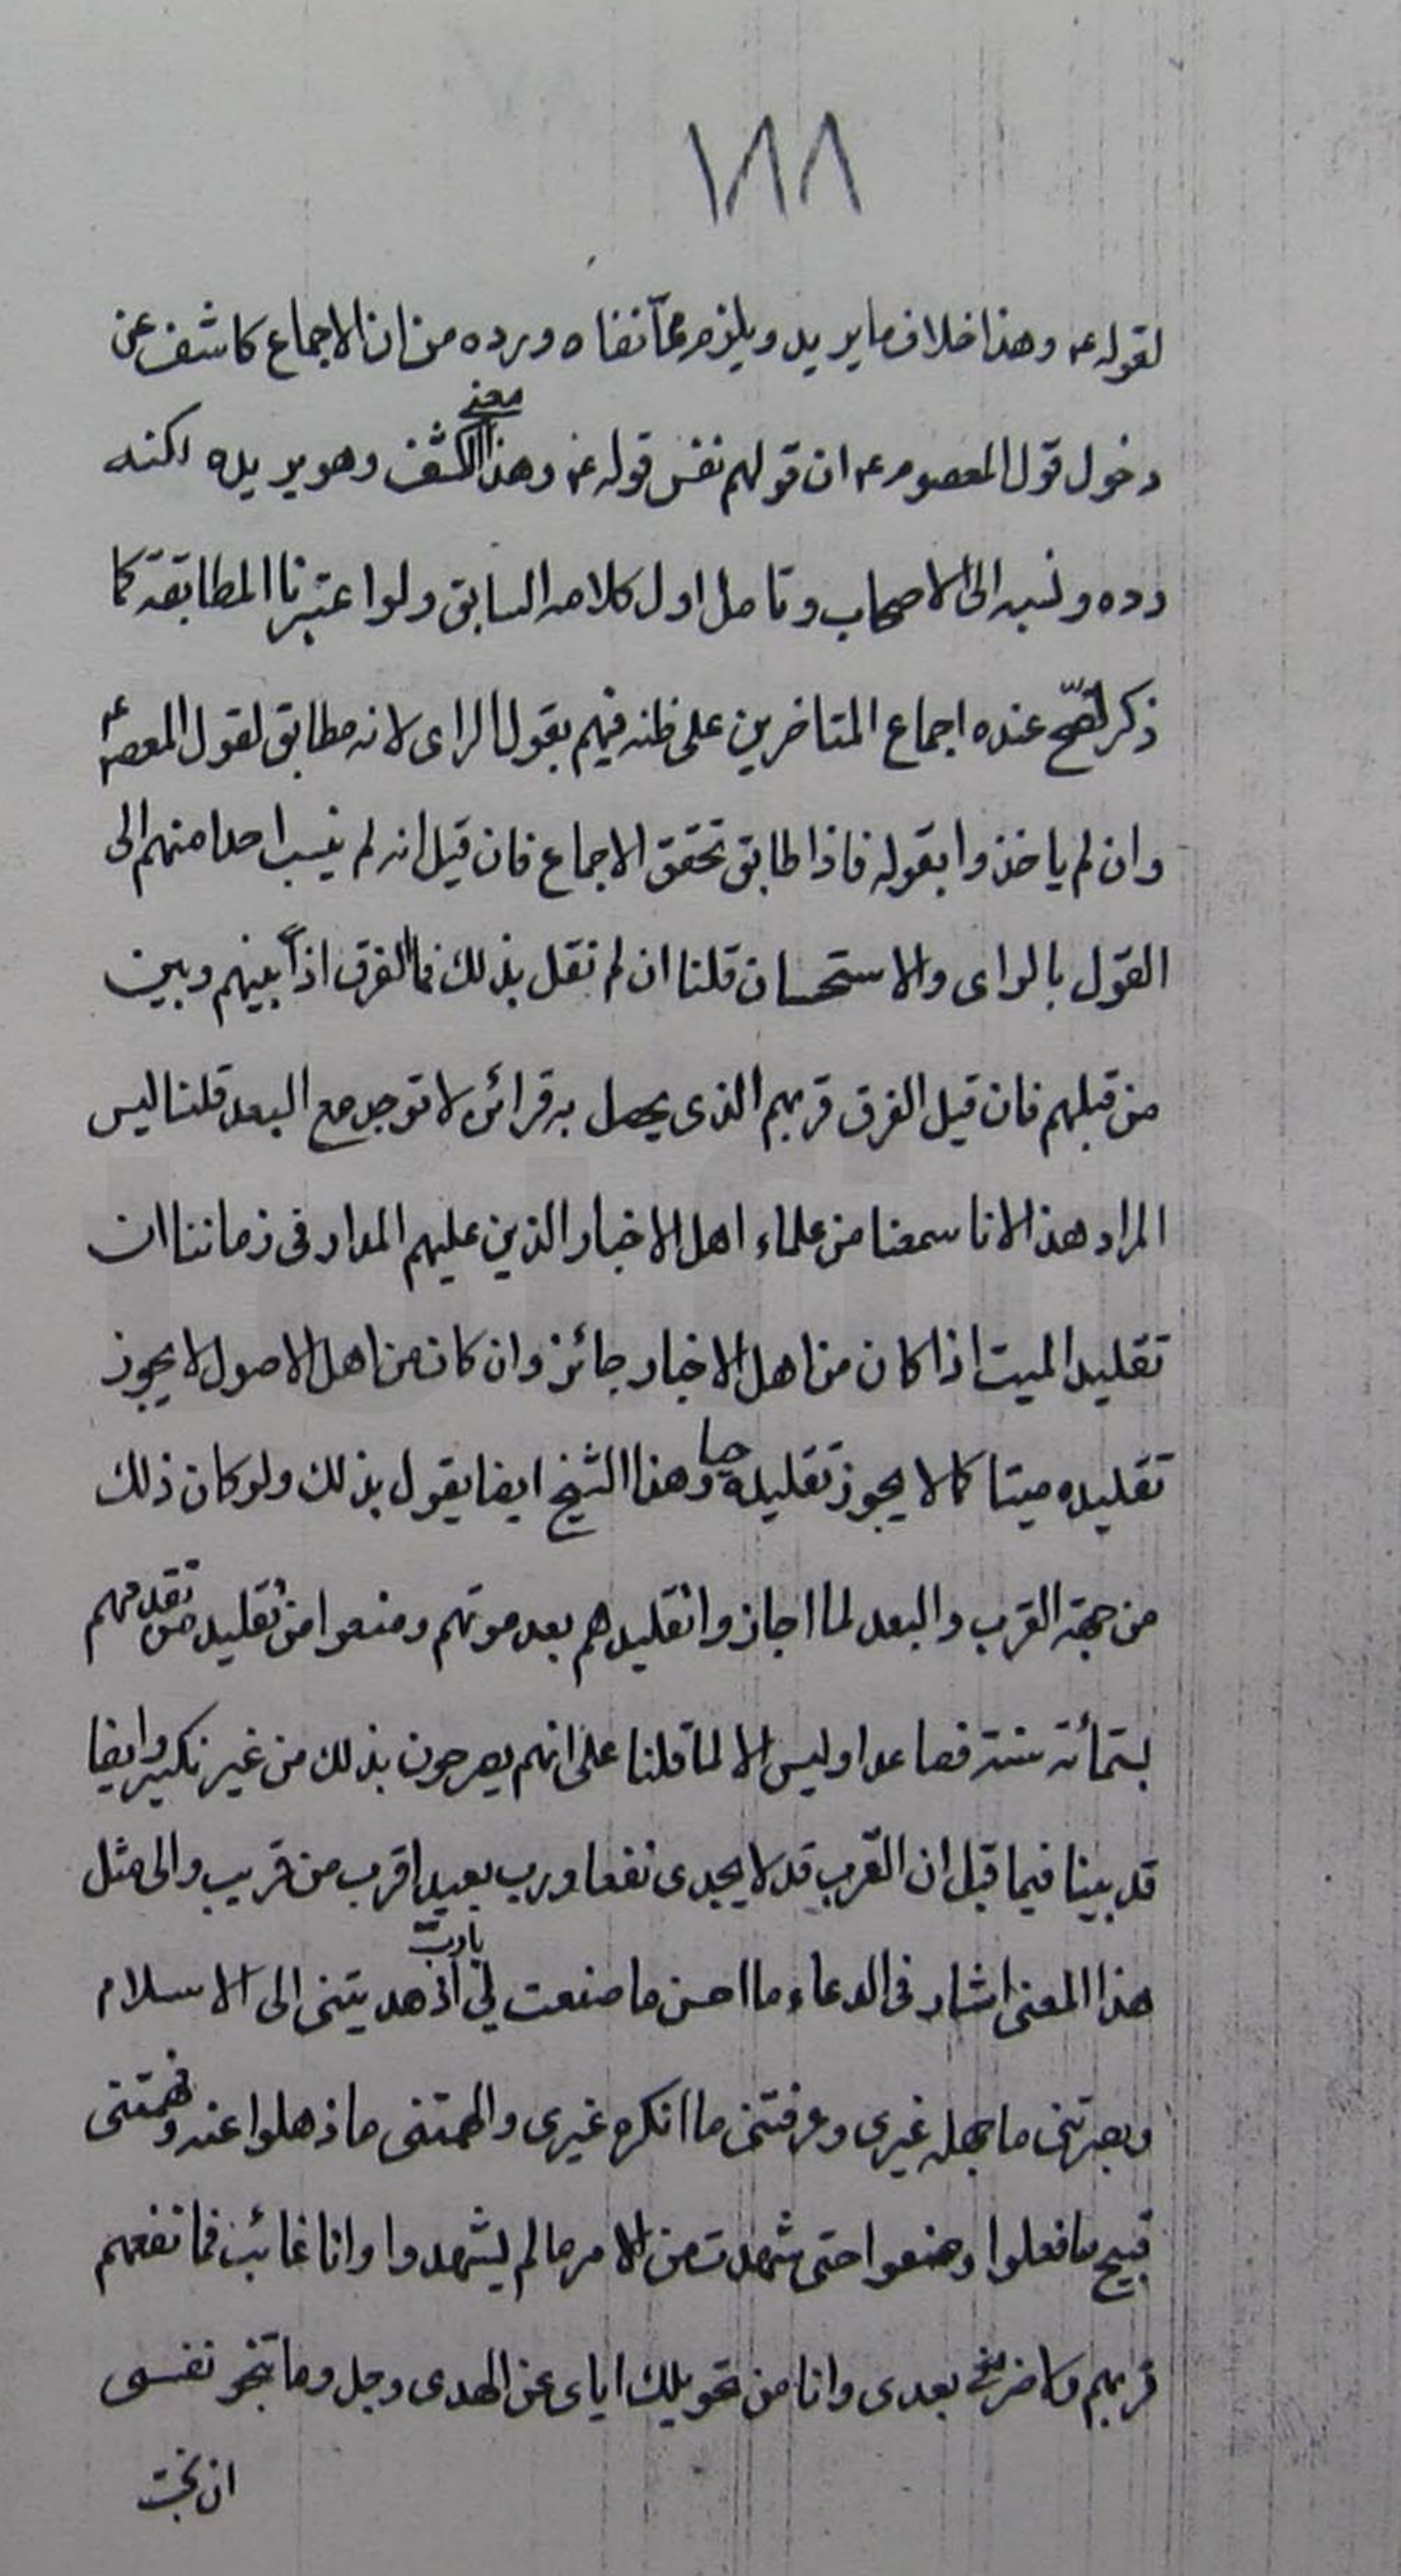 ١٨٨
لقوله ع وهذا خلاف ما يريد ويلزم مما نفاه ورده من ان الاجماع كاشف عن
دخول قول المعصوم ع ان قولهم نفس قوله ع وهذا معنى الكشف وهو يريده لكنه
رده ونسبه الى الاصحاب وتامل اول كلامه السابق ولو اعتبرنا المطابقة كما
ذكر لصح عنده اجماع المتاخرين على ظنه فيهم بقول الراى لانه مطابق لقول المعصوم ع
وان لم ياخذوا بقوله فاذا طابق تحقق الاجماع فان قيل انه لم ينسب احدا منهم الى
القول بالراى والاستحسان قلنا ان لم نقل بذلك فما الفرق اذاً بينهم وبين
من قبلهم فان قيل الفرق قربهم الذى يحصل به قرائن لا توجد مع البعد قلنا ليس
المراد هذا لانا سمعنا من علماء اهل الاخبار الذين عليهم المدار فى زماننا ان
تقليد الميت اذا كان من اهل الاخبار جائز وان كان من اهل الاصول لا يجوز
تقليده ميتا كما لا يجوز تقليده حيا وهذا الشيخ ايضا يقول بذلك ولو كان ذلك
من جهة القرب والبعد لما اجازوا تقليدهم بعد موتهم ومنعوا من تقليد من تقدمهم
بستمأئة سنة فصاعدا وليس الا لما قلنا على انهم يصرحون بذلك من غير نكير وايضا
قد بينا فيما قبل ان القرب قد لا يجدى نفعا ورب بعيد اقرب من قريب والى مثل
هذا المعنى اشار فى الدعاء ما احسن ما صنعت لي يا ربّ اذ هديتنى الى الاسلام
وبصرتنى ما جهله غيرى وعرفتنى ما انكره غيرى والهمتنى ما ذهلوا عنه وفهمتنى
قبيح ما فعلوا وصنعوا حتى شهدت من الامر ما لم يشهدوا وانا غائب فما نفعهم
قربهم ولا ضرنى بعدى وانا من تحويلك اياى عن الهدى وجل وما تنجو نفسى
ان نجت